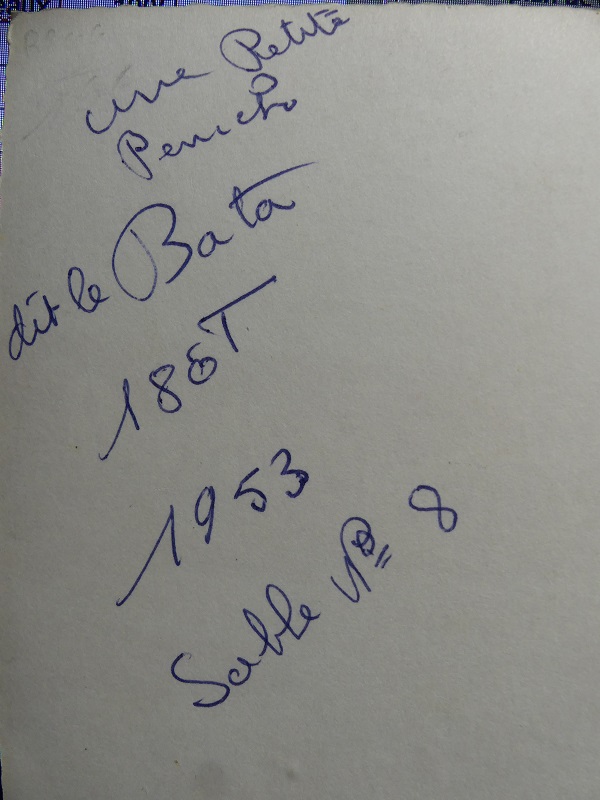 une Petite
Peniche
dit le Bata
180T
1953
Sable N° 8